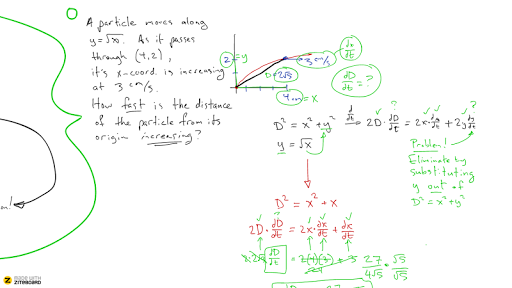 A particle moves along
y=√x. As it passes
through (4,2),
it's x-coord. is increasing
at 3 cm/s.
How fast is the distance
of the particle from its
origin increasing?
2 = y
3 cm/s
dx/dt
D=2√5
dD/dt = ?
4 cm = x
D² = x² + y²
y = √x
d/dt
2D · dD/dt = 2x · dx/dt + 2y dy/dt
?
?
Problem!
Eliminate by
substituting
y out of
D² = x² + y²
D² = x² + x
2D · dD/dt = 2x · dx/dt + dx/dt
2·2√5 dD/dt = 2(4)(3) + 3
27/4√5 · √5/√5
on!
MADE WITH
ZITEBOARD